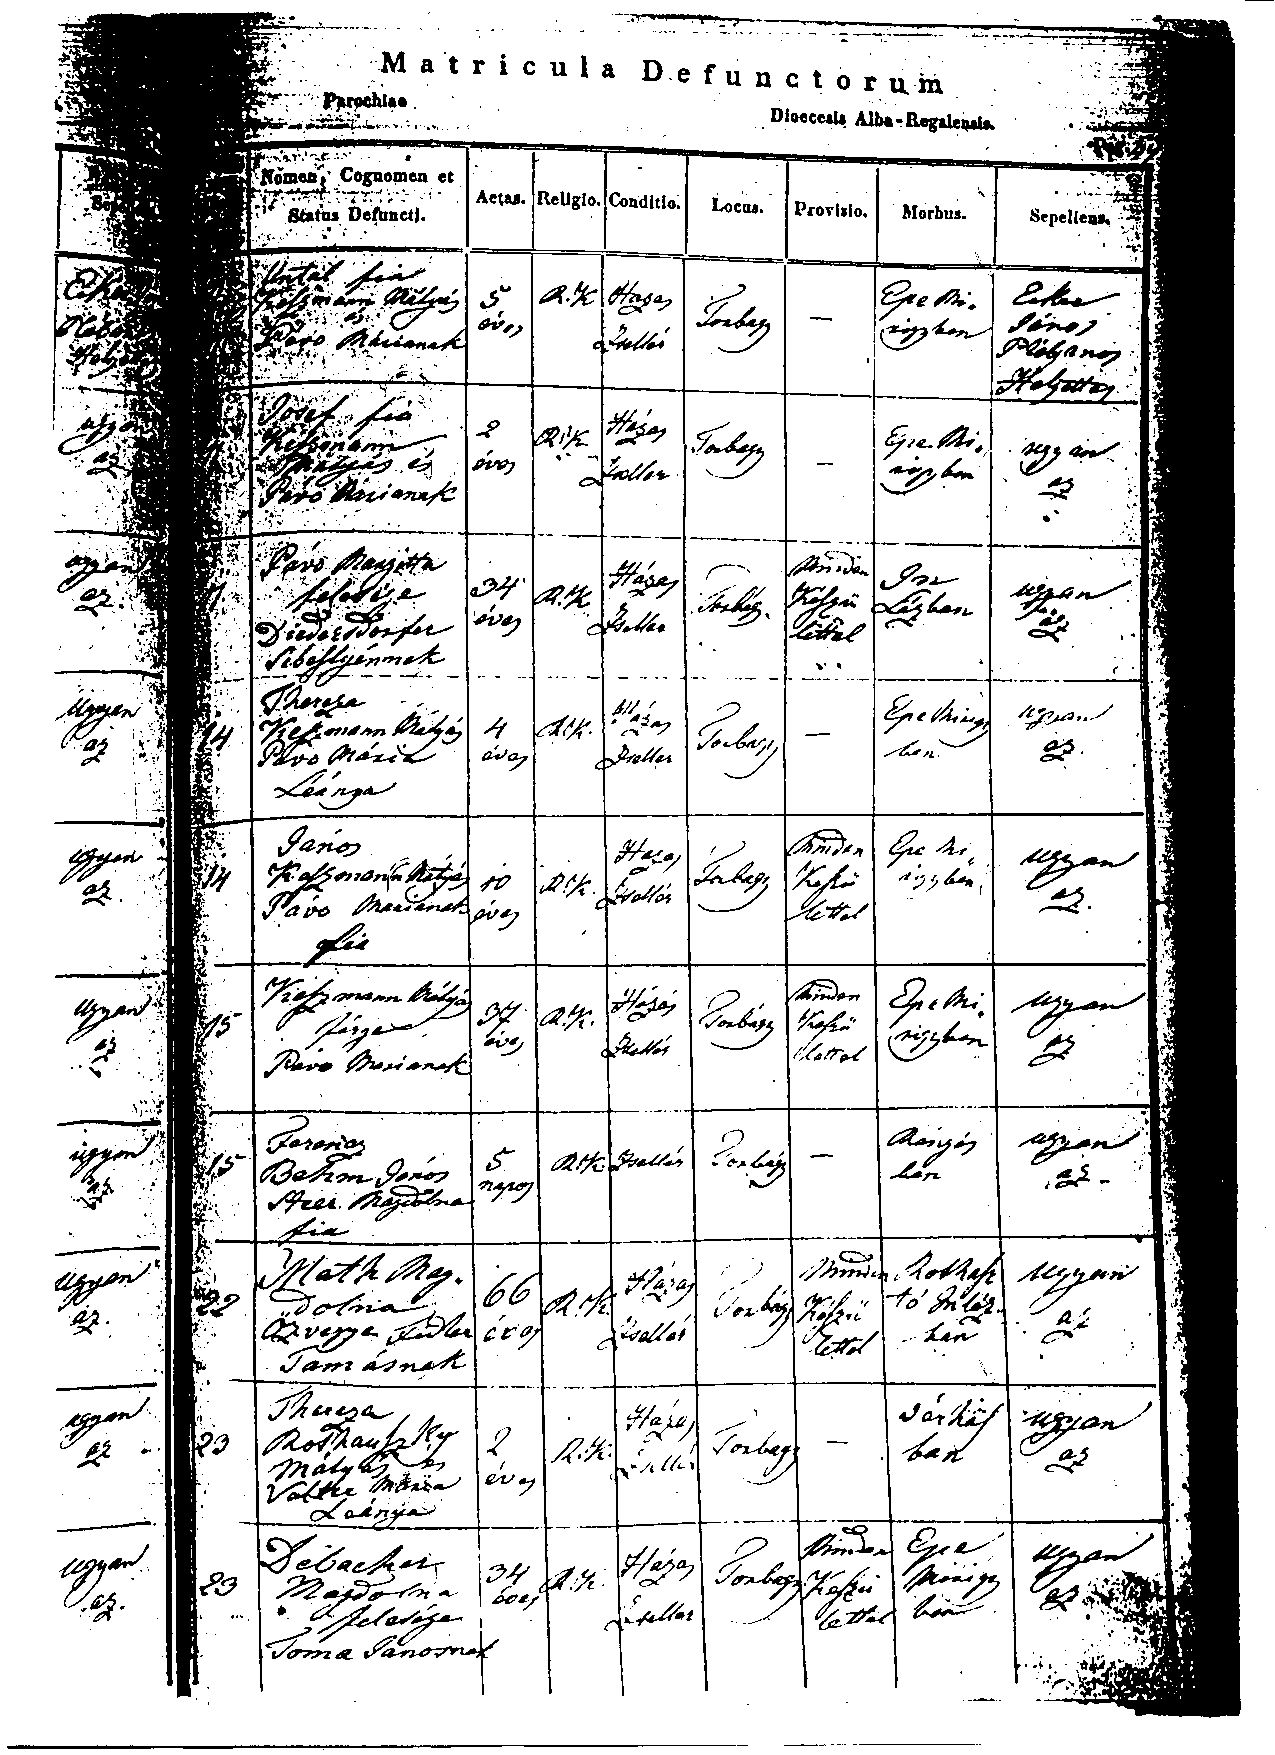 Matricula Defunctorum
Parochiae
Dioecesis Alba-Regalensis.
Nomen, Cognomen et
Status Defuncti.
Aetas.
Religio.
Conditio.
Locus.
Provisio.
Morbus.
Sepeliens.
Antal fia
Keszmann Mátyás
és
Pávó Máriának
5
éves
R.K
Házas
Zsellér
Torbagy
—
Epe Mi-
rigyben
Ecker
János
Plébános
Helyettes
ugyan
az
Josef fia
Keszmann
Mátyás és
Pávó Marianak
2
éves
R.K
Házas
Zseller
Torbagy
—
Epe Mi-
rigyben
ugyan
az
ugyan
az.
Pávó Margitta
felesége
Diedersdorfer
Sebestyénnek
34
éves
R.K
Házas
Zseller
Torbágy.
Minden
Készü
lettel
Inn
Lázban
ugyan
az
Ugyan
az
14
Thereza
Keszmann Mátyás
Pávo Mária
Leánya
4
éves
R.K.
Házas
Zseller
Torbagy
—
Epe Mirigy
ben
ugyan
az.
ugyan
az.
14
János
Keszmann Mátyás
Pávo Marianak
fia
10
éves
R.K.
Hazas
Zsellér
Torbagy
Minden
Keszü
lettel
Epe Mi-
rigyben
ugyan
az.
ugyan
az
15
Keszmann Mátyás
férge
Pávo Marianak
37
éves
R.K.
Házas
Zsellér
Torbágy
Minden
Keszü
lettel
Epe Mi-
rigyben
ugyan
az
ugyan
az
15
Ferencz
Behm János
Magdolna
fia
5
napos
R.K.
Zsellér
Torbágy
—
Rángás
ban
ugyan
az
ugyan
az.
22
Math Mag-
dolna
Özvegye Fidler
Tamásnak
66
éves
R.K.
Házas
Zsellér
Torbágy
Minden
Készü
lettel
Rothasz
tó Inláz-
ban
ugyan
az
ugyan
az
23
Thereza
Rothauszky
Mátyás és
Valthe Mária
Leánya
2
éves
R.K.
Házas
Zsellér
Torbagy
—
Sárkás
ban
ugyan
az
ugyan
az.
23
Debacker
Magdolna
felesége
Toma Janosnak
34
éves
R.K.
Házas
Zseller
Torbagy
Minden
Keszü
lettel
Epe
Mirigy
ben
ugyan
az